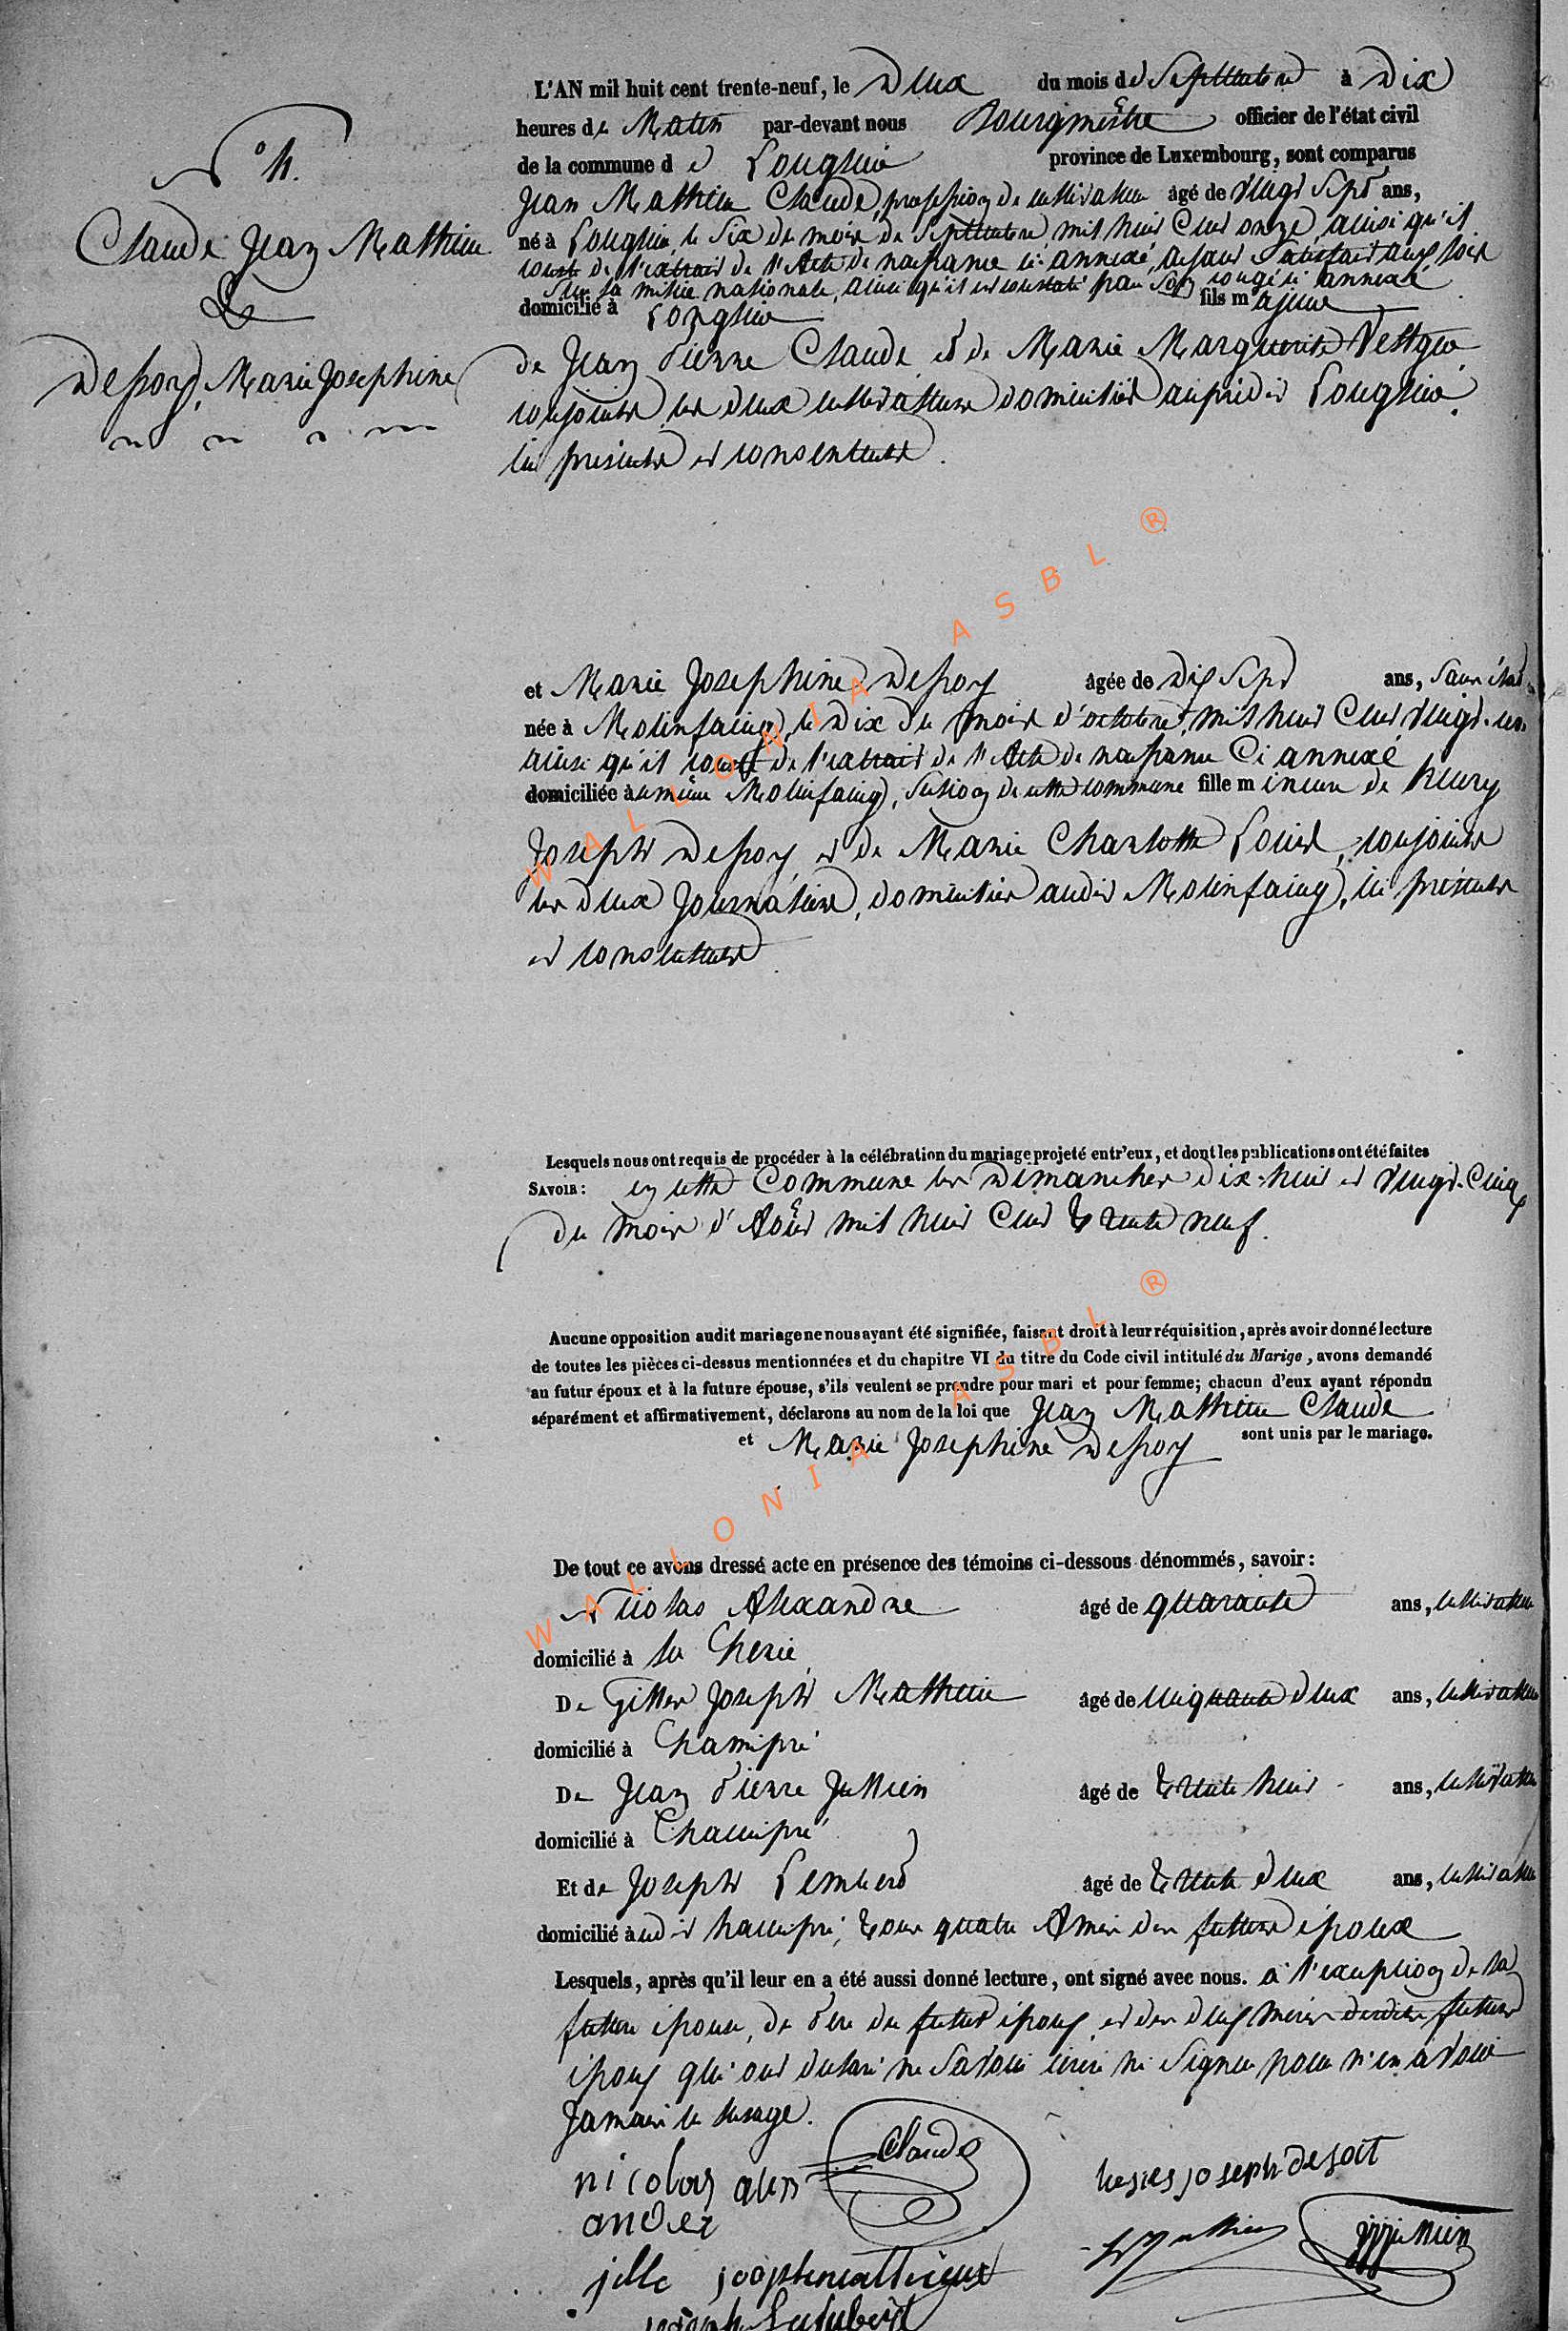 L'AN mil huit cent trente-neuf, le Deux du mois de Septembre à Dix
heures de Matin par-devant nous Bourgmestre officier de l'état civil
de la commune d e Longlier province de Luxembourg, sont comparus
Jean Mathieu Claude, profession de cultivateur âgé de vingt Sept ans,
né à Longlier le Six du mois de Septembre mil huit Cent onze, ainsi qu'il
conste de l'extrait de l'Acte de naissance ci-annexé, ayant Satisfait aux lois
Sur la milice nationale, ainsi qu'il est constaté par Son congé ci annexé
domicilié à Longlier fils majeur
de Jean Pierre Claude et de Marie Marguerite
conjoints les deux cultivateurs domiciliés au prédit Longlier,
ici présents et consentants.
N° 11.
Claude Jean Mathieu
&
Dessoy, Marie Josephine
et Marie Josephine Dessoy âgée de Dix Sept ans, Sans état
née à Molinfaing, le Dix du mois d'octobre, mil huit Cent vingt-un
ainsi qu'il conste de l'extrait de l'Acte de naissance Ci annexé
domiciliée à même Molinfaing, Section de cette commune fille mineure de henry
Joseph Dessoy et de Marie Charlotte Louis, conjoints
les deux Journaliers, domiciliés audit Molinfaing, ici présents
et consentants
Lesquels nous ont requis de procéder à la célébration du mariage projeté entr'eux, et dont les publications ont été faites
SAVOIR: en cette Commune les Dimanches dix-huit et vingt-Cinq
du mois d'Août mil huit Cent trente neuf.
Aucune opposition audit mariage ne nous ayant été signifiée, faisant droit à leur réquisition, après avoir donné lecture
de toutes les pièces ci-dessus mentionnées et du chapitre VI du titre du Code civil intitulé du Marige, avons demandé
au futur époux et à la future épouse, s'ils veulent se prendre pour mari et pour femme; chacun d'eux ayant répondu
séparément et affirmativement, déclarons au nom de la loi que Jean Mathieu Claude
et Marie Josephine Dessoy sont unis par le mariage.
De tout ce avons dressé acte en présence des témoins ci-dessous dénommés, savoir:
Nicolas Alexandre âgé de quarante ans, cultivateur
domicilié à la Cherie
De Gilles Joseph Mathieu âgé de cinquante deux ans, cultivateur
domicilié à Hamipré
De Jean Pierre Jullien âgé de trente huit ans, cultivateur
domicilié à Hamipré
Et de Joseph Lembert âgé de trente deux ans, cultivateur
domicilié audit hamipré, tous quatre Amis des futurs époux
Lesquels, après qu'il leur en a été aussi donné lecture, ont signé avec nous. à l'exception de la
future épouse, du Père du futur époux et des deux mères desdits futurs
époux qui ont déclaré ne Savoir écrire ni Signer pour n'en avoir
Jamais eu usage.
Claude
nicolas alex
andre
joseph desoit
jille joosph mathieux
joseph
WALLONIA ASBL ®
WALLONIA ASBL ®